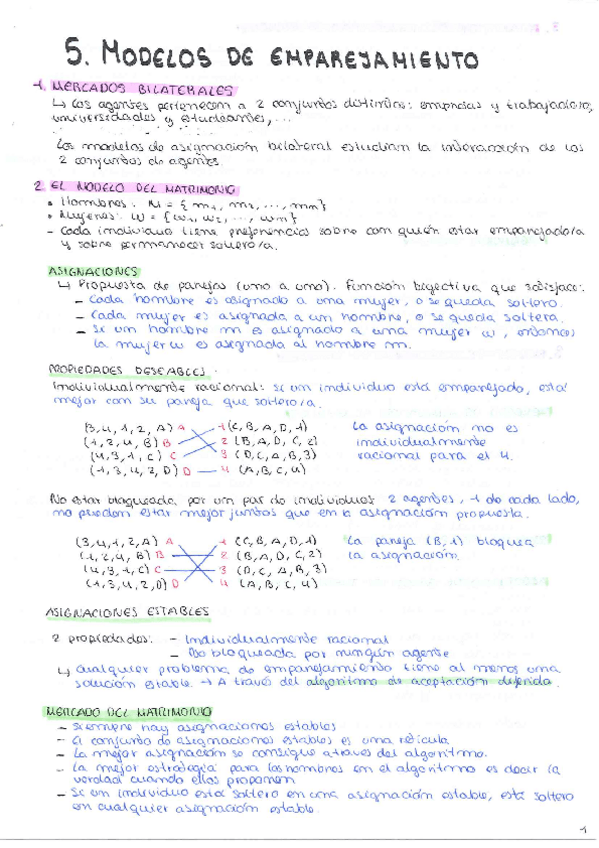 5. MODELOS DE EMPAREJAMIENTO
1. MERCADOS BILATERALES
↳ Los agentes pertenecen a 2 conjuntos distintos: empresas y trabajadores,
universidades y estudiantes, ...
Los modelos de asignación bilateral estudian la interacción de los
2 conjuntos de agentes
2. EL MODELO DEL MATRIMONIO
• Hombres: M = {m1, m2, ..., mn}
• Mujeres: W = {w1, w2, ..., wm}
- Cada individuo tiene preferencias sobre con quién estar emparejado/a
y sobre permanecer soltero/a.
ASIGNACIONES
↳ Propuesta de parejas (uno a uno). Función biyectiva que satisface:
- Cada hombre es asignado a una mujer, o se queda soltero.
- Cada mujer es asignada a un hombre, o se queda soltera.
- Si un hombre m es asignado a una mujer w, entonces
la mujer w es asignada al hombre m.
PROPIEDADES DESEABLES
Individualmente racional: si un individuo está emparejado, está
mejor con su pareja que soltero/a.
(3,4,1,2,A) A 1 (C,B,A,D,1) La asignación no es
(1,2,4,B) B 2 (B,A,D,C,2) individualmente
(4,3,1,C) C 3 (D,C,A,B,3) racional para el 4.
(1,3,4,2,D) D 4 (A,B,C,4)
No estar bloqueada por un par de individuos: 2 agentes, 1 de cada lado,
no pueden estar mejor juntos que en la asignación propuesta.
(3,4,1,2,A) A 1 (C,B,A,D,1) La pareja (B,1) bloquea
(1,2,4,B) B 2 (B,A,D,C,2) la asignación.
(4,3,1,C) C 3 (D,C,A,B,3)
(1,3,4,2,D) D 4 (A,B,C,4)
ASIGNACIONES ESTABLES
2 propiedades: - Individualmente racional
- No bloqueada por ningún agente
↳ Cualquier problema de emparejamiento tiene al menos una
solución estable → A través del algoritmo de aceptación diferida.
MERCADO DEL MATRIMONIO
- Siempre hay asignaciones estables
- El conjunto de asignaciones estables es una retícula
- La mejor asignación se consigue a través del algoritmo.
- La mejor estrategia para los hombres en el algoritmo es decir la
verdad cuando ellos proponen
- Si un individuo está soltero en una asignación estable, está soltero
en cualquier asignación estable.
1